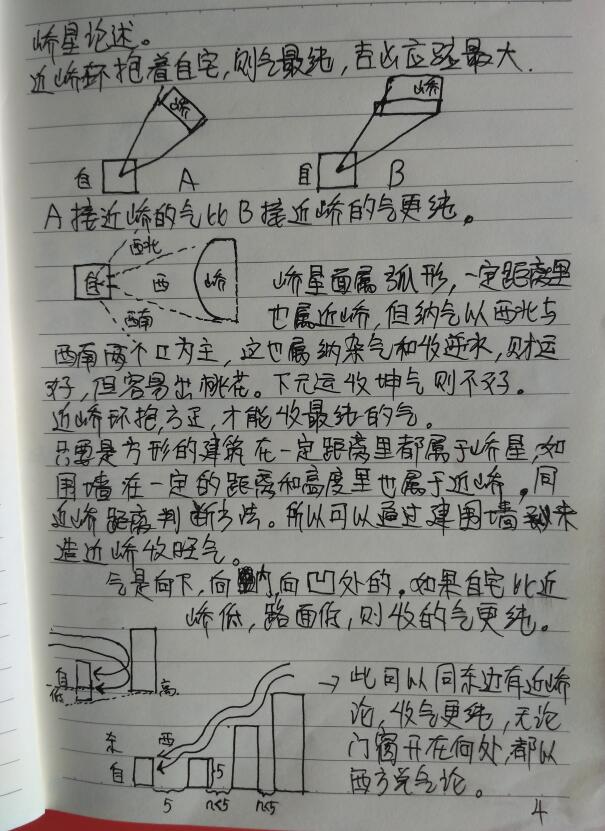 峤星论述。
近峤环抱着自宅,则气最纯,吉凶应验最大.
峤 峤
自 A 自 B
A接近峤的气比B接近峤的气更纯。
西北
自 西 峤
西南
峤星面属弧形,一定距离里
也属近峤,但纳气以西北与
西南两个口为主,这也属纳杂气和收逆水,财运
好,但容易出桃花。下元运收坤气则不好。
近峤环抱,方正,才能收最纯的气。
只要是方形的建筑在一定距离里都属于峤星,如
围墙在一定的距离和高度里也属于近峤。同
近峤距离判断方法。所以可以通过建围墙来
造近峤收旺气。
气是向下,向内,向凹处的。如果自宅比近
峤低,路面低,则收的气更纯。
自
低 高
→此可以同东边有近峤
论,收气更纯,无论
门窗开在何处,都以
西方完气论。
东 西
自 5
5 n<5 n<5
4